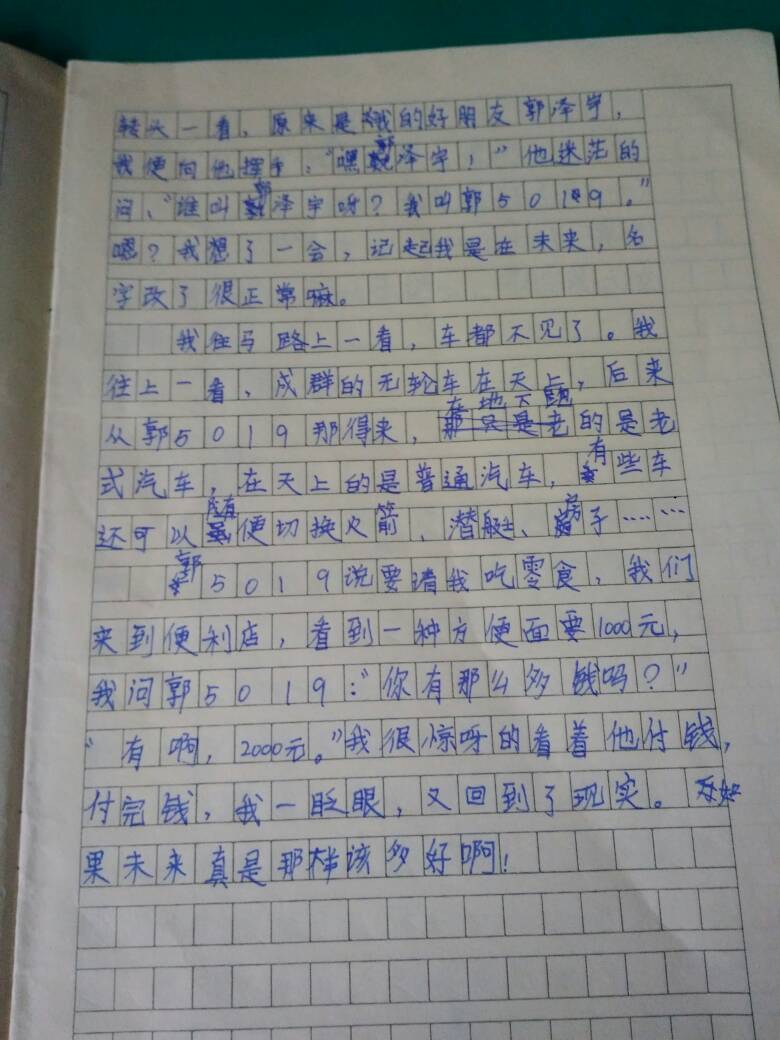 转头一看，原来是我的好朋友郭泽宇，
我便向他挥手：“嘿郭泽宇！”他迷茫的
问、“谁叫郭泽宇呀？我叫郭5019。”
嗯？我想了一会，记起我是在未来，名
字改了很正常嘛。
我往马路上一看，车都不见了。我
往上一看、成群的无轮车在天上，后来
从郭5019那得来，在地下跑的是老
式汽车，在天上的是普通汽车，有些车
还可以随便切换火箭、潜艇、房子……
郭5019说要请我吃零食，我们
来到便利店，看到一种方便面要1000元，
我问郭5019：“你有那么多钱吗？”
“有啊，2000元。”我很惊呀的看着他付钱，
付完钱，我一眨眼，又回到了现实。如
果未来真是那样该多好啊！